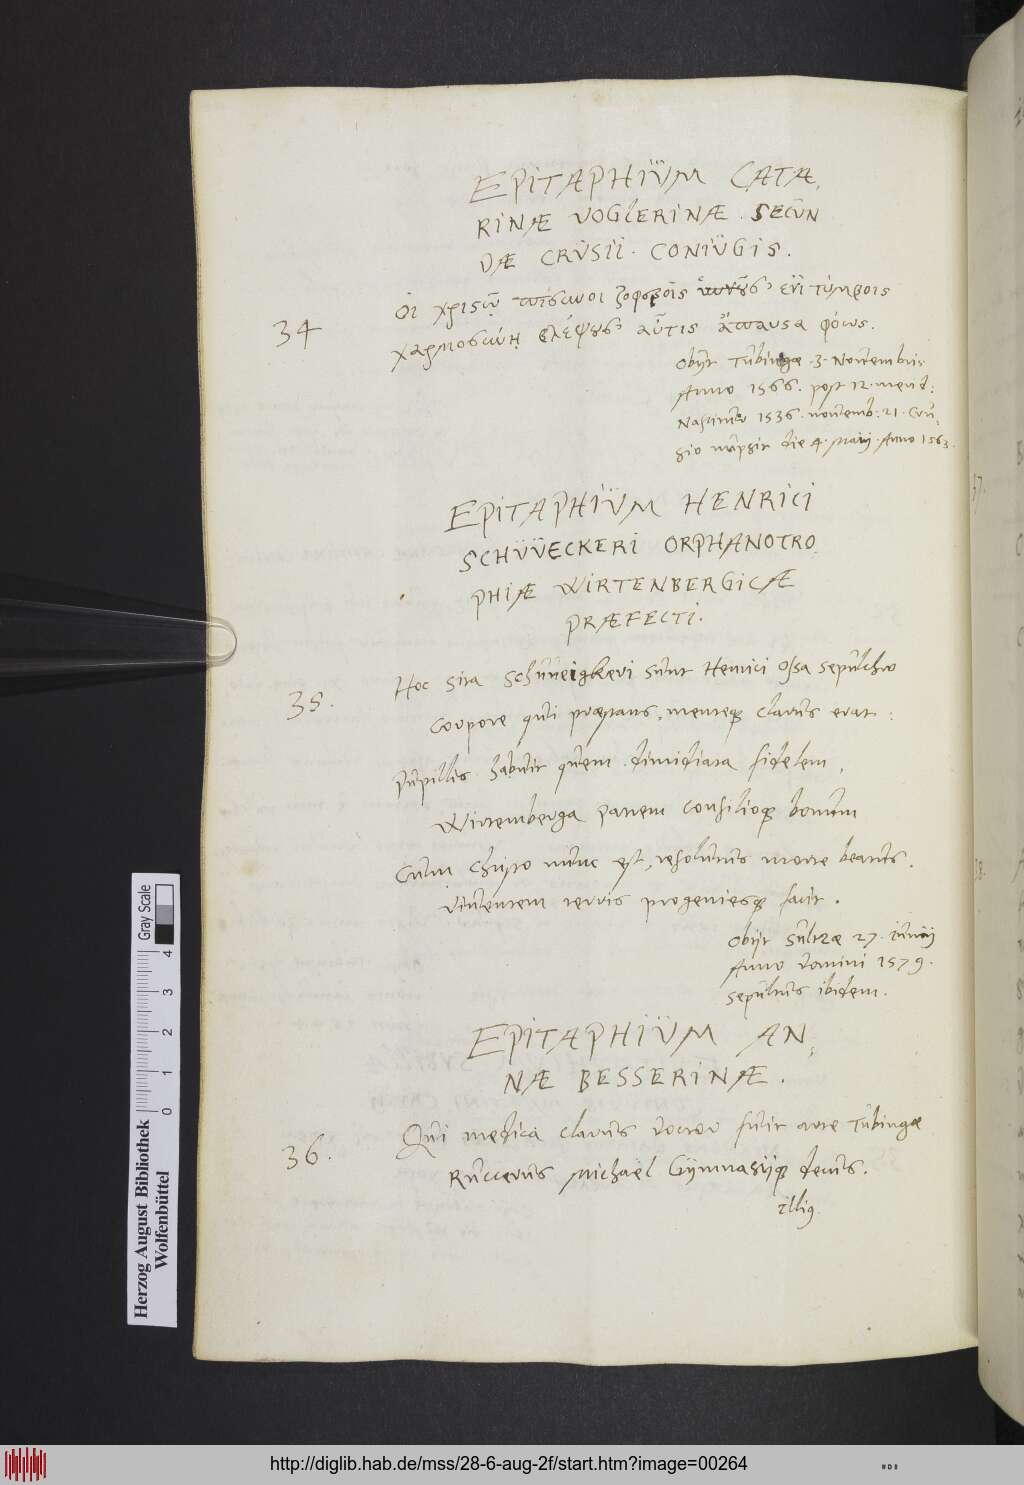 EPITAPHIVM CATA,
RINÆ VOGLERINÆ. SECVN
DÆ CRVSII. CONIVGIS.
34
Οἱ χριστῷ πίσυνοι ζοφεροῖς ἐνὶ τύμβοις
χαρμοσύνη βλέψουσ' αὖτις ἄπαυστα φόως.
Obijt Tubingæ .3. Novembris
Anno 1566. post 12. merid:
Nascitur 1536. novemb: 21. Cru,
sio nupsit die 4. Maij. Anno 1563.
EPITAPHIVM HENRICI
SCHVVECKERI ORPHANOTRO,
PHIÆ WIRTENBERGICÆ
PRÆFECTI.
35.
Hoc sita Schuueigkeri sunt Henrici ossa sepulchro
Corpore qui præstans, menteq; clarus erat:
Pupillis habuit quem dimidiata fidelem,
Wirtemberga patrem consilioq; bonum
Cum Christo nunc est, resolutus morte beatus.
Viuentem terris progeniesq; facit.
Obijt Sultzæ 27. Iunij
Anno domini 1579.
Sepultus ibidem.
EPITAPHIVM AN,
NÆ BESSERINÆ.
36.
Qui medica clarus doctor fuit arte Tubingæ
Ruccerus Michaël Gymnasijq; decus.
illiq.
Herzog August Bibliothek
Wolfenbüttel
0 1 2 3 4
Gray Scale
http://diglib.hab.de/mss/28-6-aug-2f/start.htm?image=00264